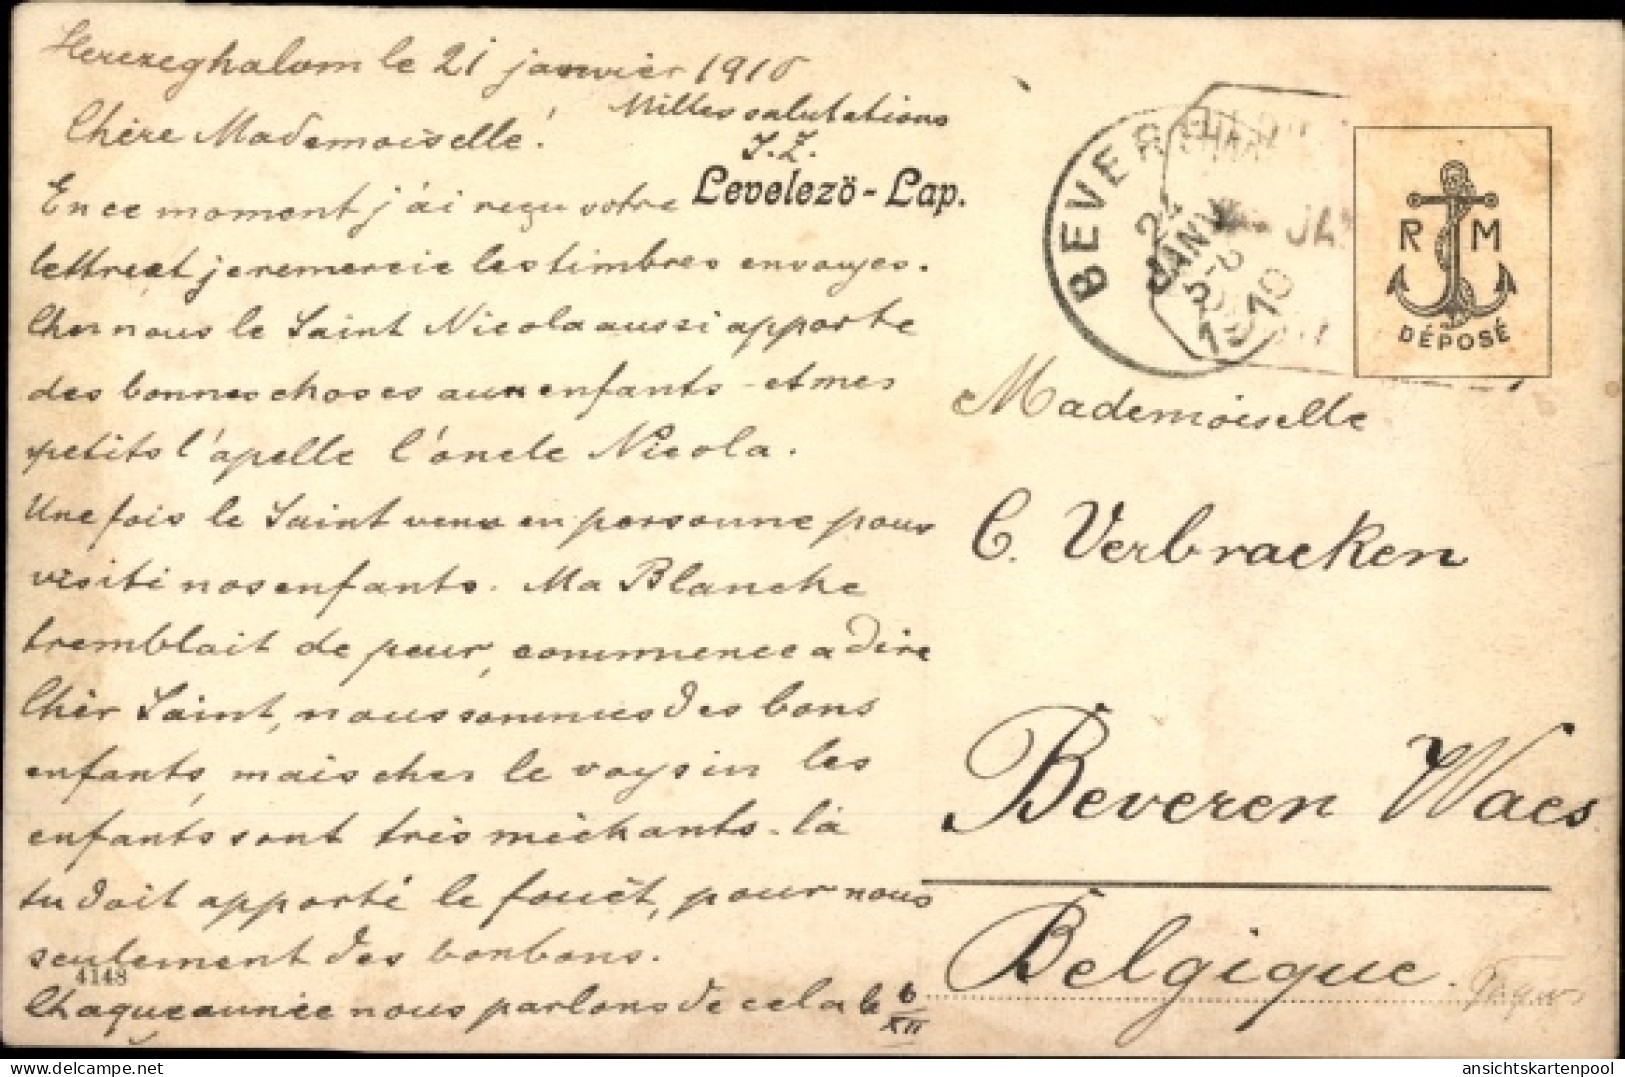 Herczeghalom le 21 janvier 1910
Milles salutations
Chère Mademoiselle!
J. Z.
Levelezö-Lap.
En ce moment j'ái reçu votre
lettre et je remercie les timbres envoyes.
Cher nous le Saint Nicola aussi apporte
des bonnes choses aux enfants - et mes
petits l'apelle l'óncle Nicola.
Une fois le Saint venu en personne pour
visiti nos enfants. Ma Blanche
tremblait de peur, commence a dire
Chèr Saint, nous sommes des bons
enfants, mais cher le voysin les
enfants sont très méchants. là
tu doit apporté le fouët, pour nous
seulement des bonbons.
4148
Chaque année nous parlons de cela le 6/XII
BEVEREN
24 JANV
1910
R M
DÉPOSÉ
Mademoiselle
C. Verbraeken
Beveren Waes
Belgique.
ansichtskartenpool